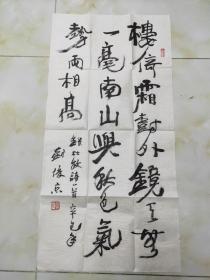 樓倚霜樹外鏡天無
一毫南山與秋色氣
勢兩相高
錄杜牧詩一首